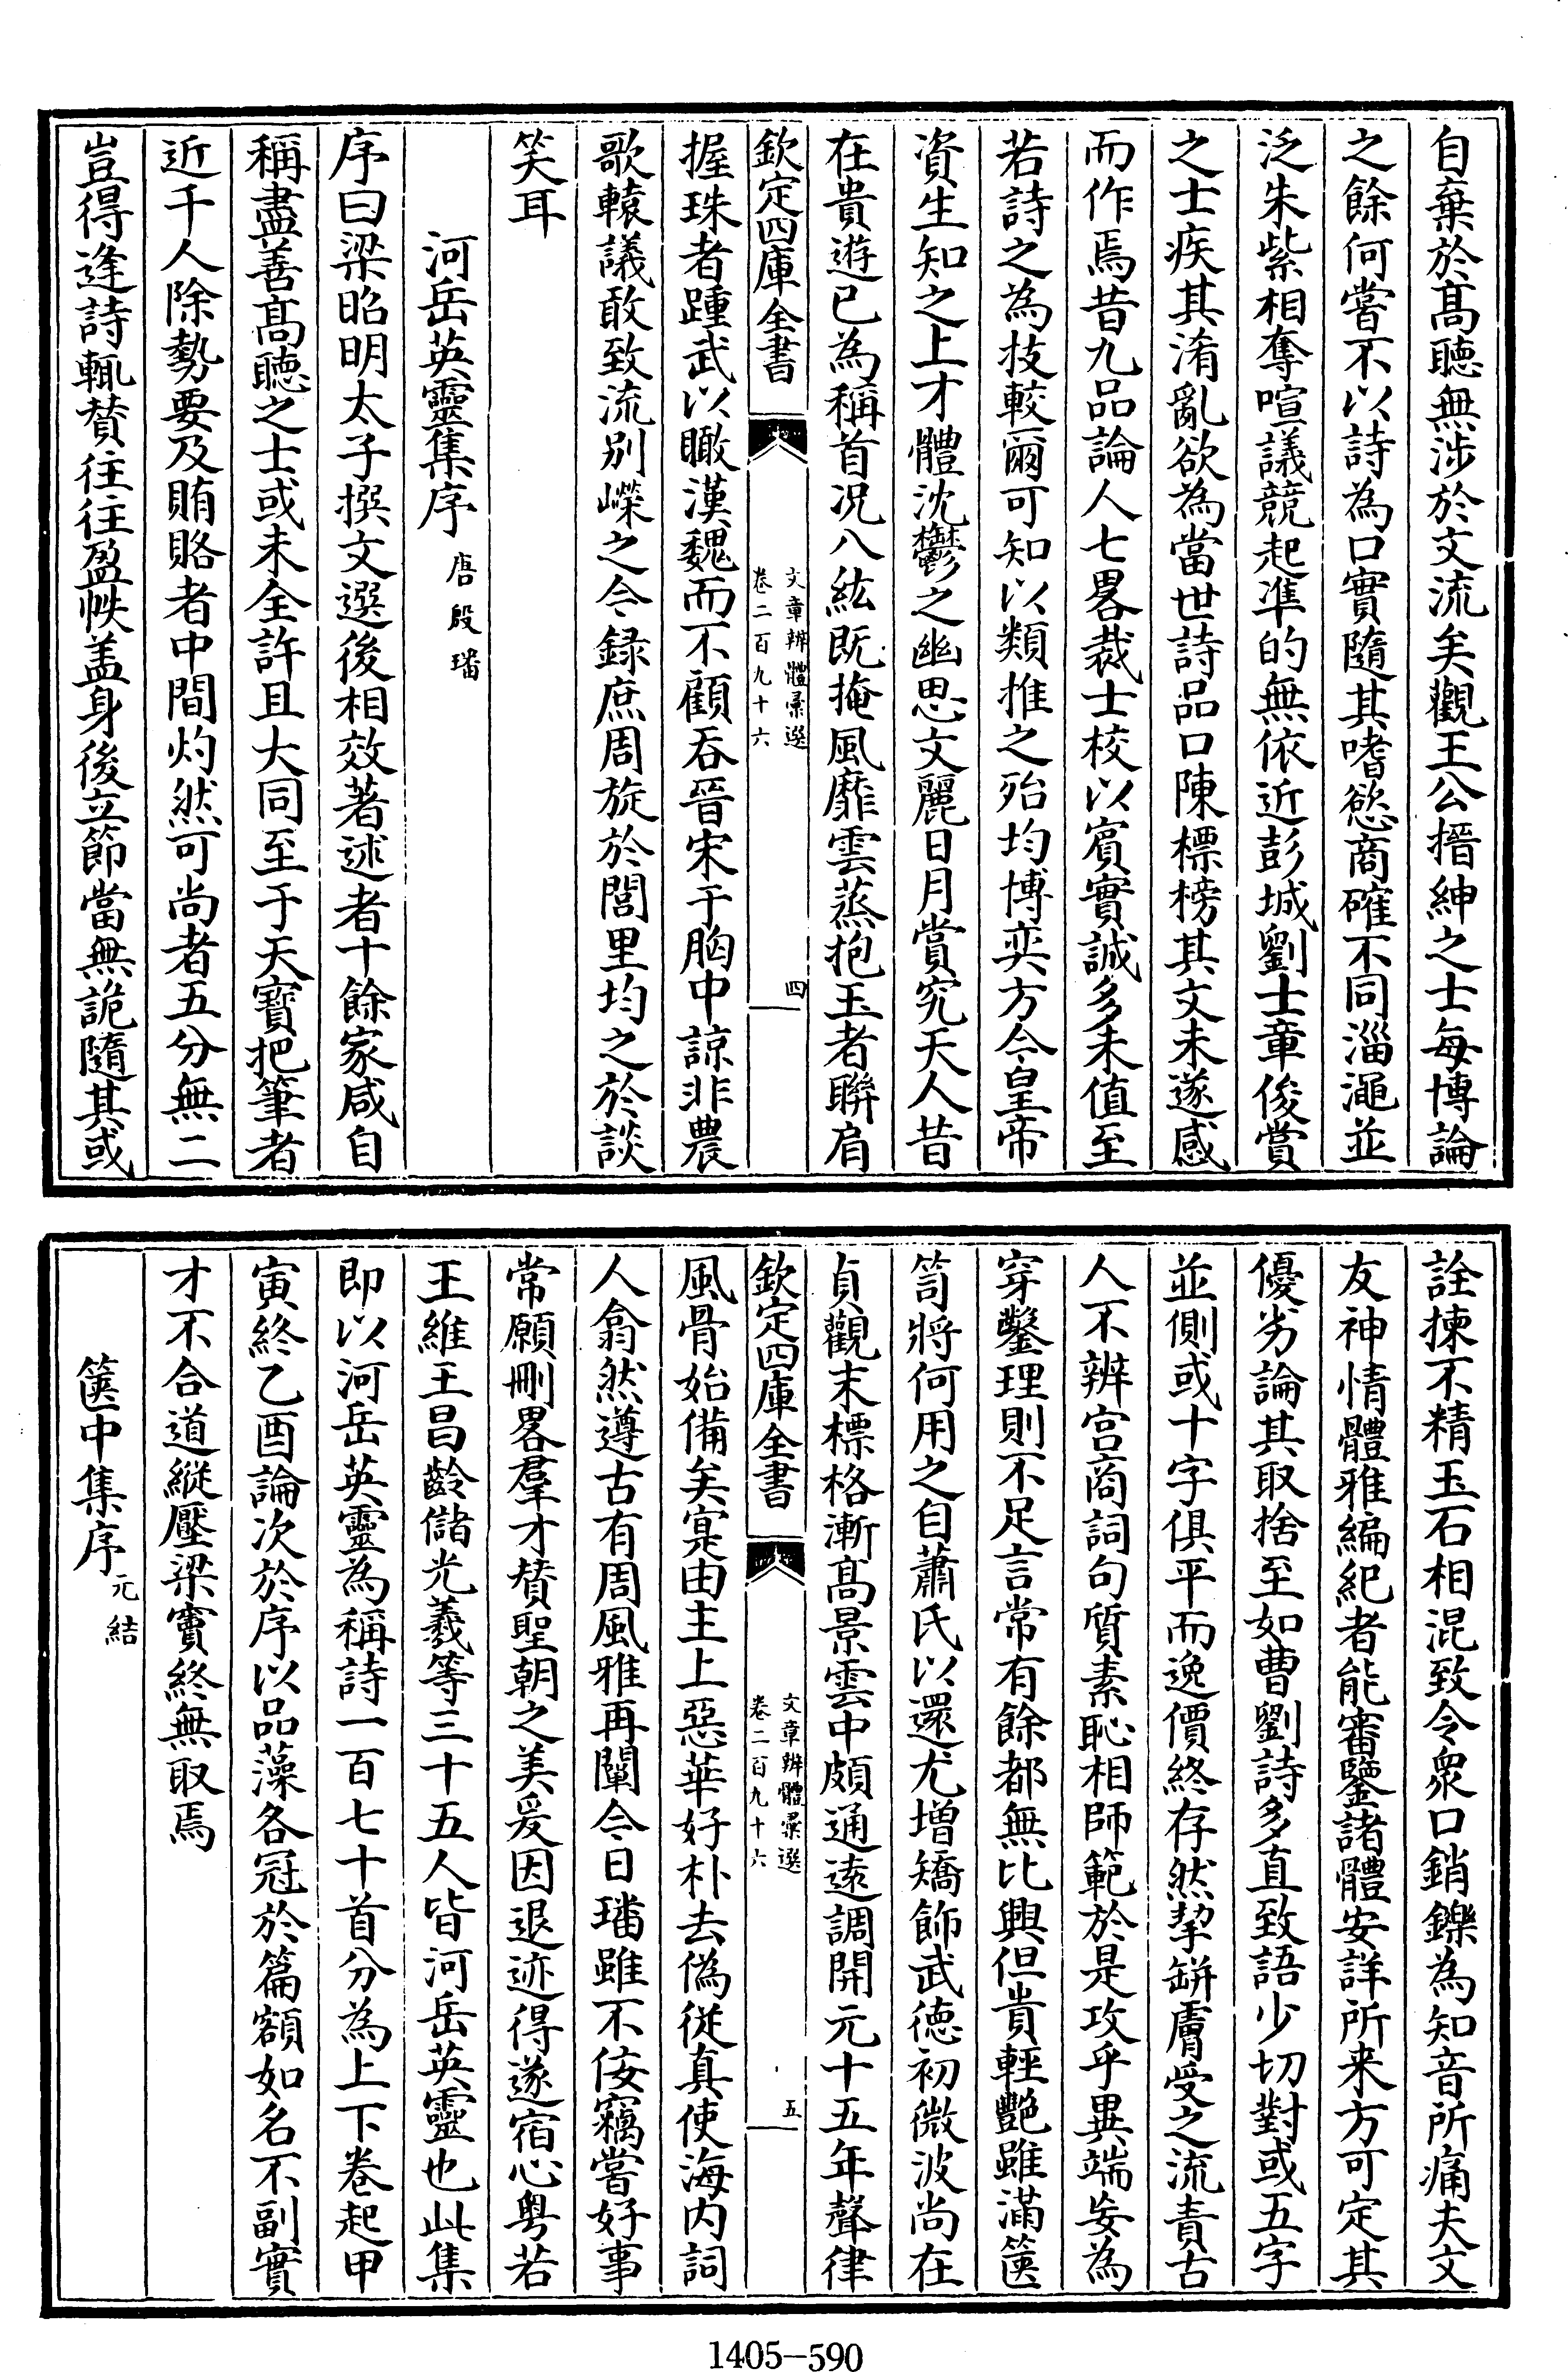 自棄於髙聴無涉於文流矣觀王公搢紳之士每博論
之餘何嘗不以詩為口實隨其嗜慾商確不同淄澠並
泛朱紫相奪喧議競起凖的無依近彭城劉士章俊賞
之士疾其淆亂欲為當世詩品口陳標榜其文未遂感
而作焉昔九品論人七畧裁士校以賔實誠多未值至
若詩之為技較爾可知以類推之殆均博奕方今皇帝
資生知之上才體沈鬱之幽思文麗日月賞究天人昔
在貴遊已為稱首况八紘既掩風靡雲蒸抱玉者聯肩
欽定四庫全書
文章辨體彚選
卷二百九十六
四
握珠者踵武以瞰漢魏而不顧吞晉宋于胸中諒非農
歌轅議敢致流别嶸之今録庶周旋於閭里均之於談
笑耳
河岳英靈集序 唐殷璠
序曰梁昭明太子撰文選後相效著述者十餘家咸自
稱盡善髙聴之士或未全許且大同至于天寳把筆者
近千人除勢要及賄賂者中間灼然可尚者五分無二
豈得逢詩輒賛往往盈帙盖身後立節當無詭隨其或
詮揀不精玉石相混致令衆口銷鑠為知音所痛夫文
友神情體雅編紀者能審鑒諸體安詳所来方可定其
優劣論其取捨至如曹劉詩多直致語少切對或五字
並側或十字俱平而逸價終存然挈缾膚受之流責古
人不辨宫商詞句質素恥相師範於是攻乎異端妄為
穿鑿理則不足言常有餘都無比興但貴輕艷雖滿篋
笥將何用之自蕭氏以還尤增矯飾武徳初微波尚在
貞觀末標格漸髙景雲中頗通逺調開元十五年聲律
欽定四庫全書
文章辨體彚選
卷二百九十六
五
風骨始備矣寔由主上惡華好朴去偽從真使海内詞
人翕然遵古有周風雅再闡今日璠雖不佞竊嘗好事
常願刪畧羣才賛聖朝之美爰因退迹得遂宿心粤若
王維王昌齡儲光羲等三十五人皆河岳英靈也此集
即以河岳英靈為稱詩一百七十首分為上下卷起甲
寅終乙酉論次於序以品藻各冠於篇額如名不副實
才不合道縱壓梁竇終無取焉
篋中集序 元結
1405-590